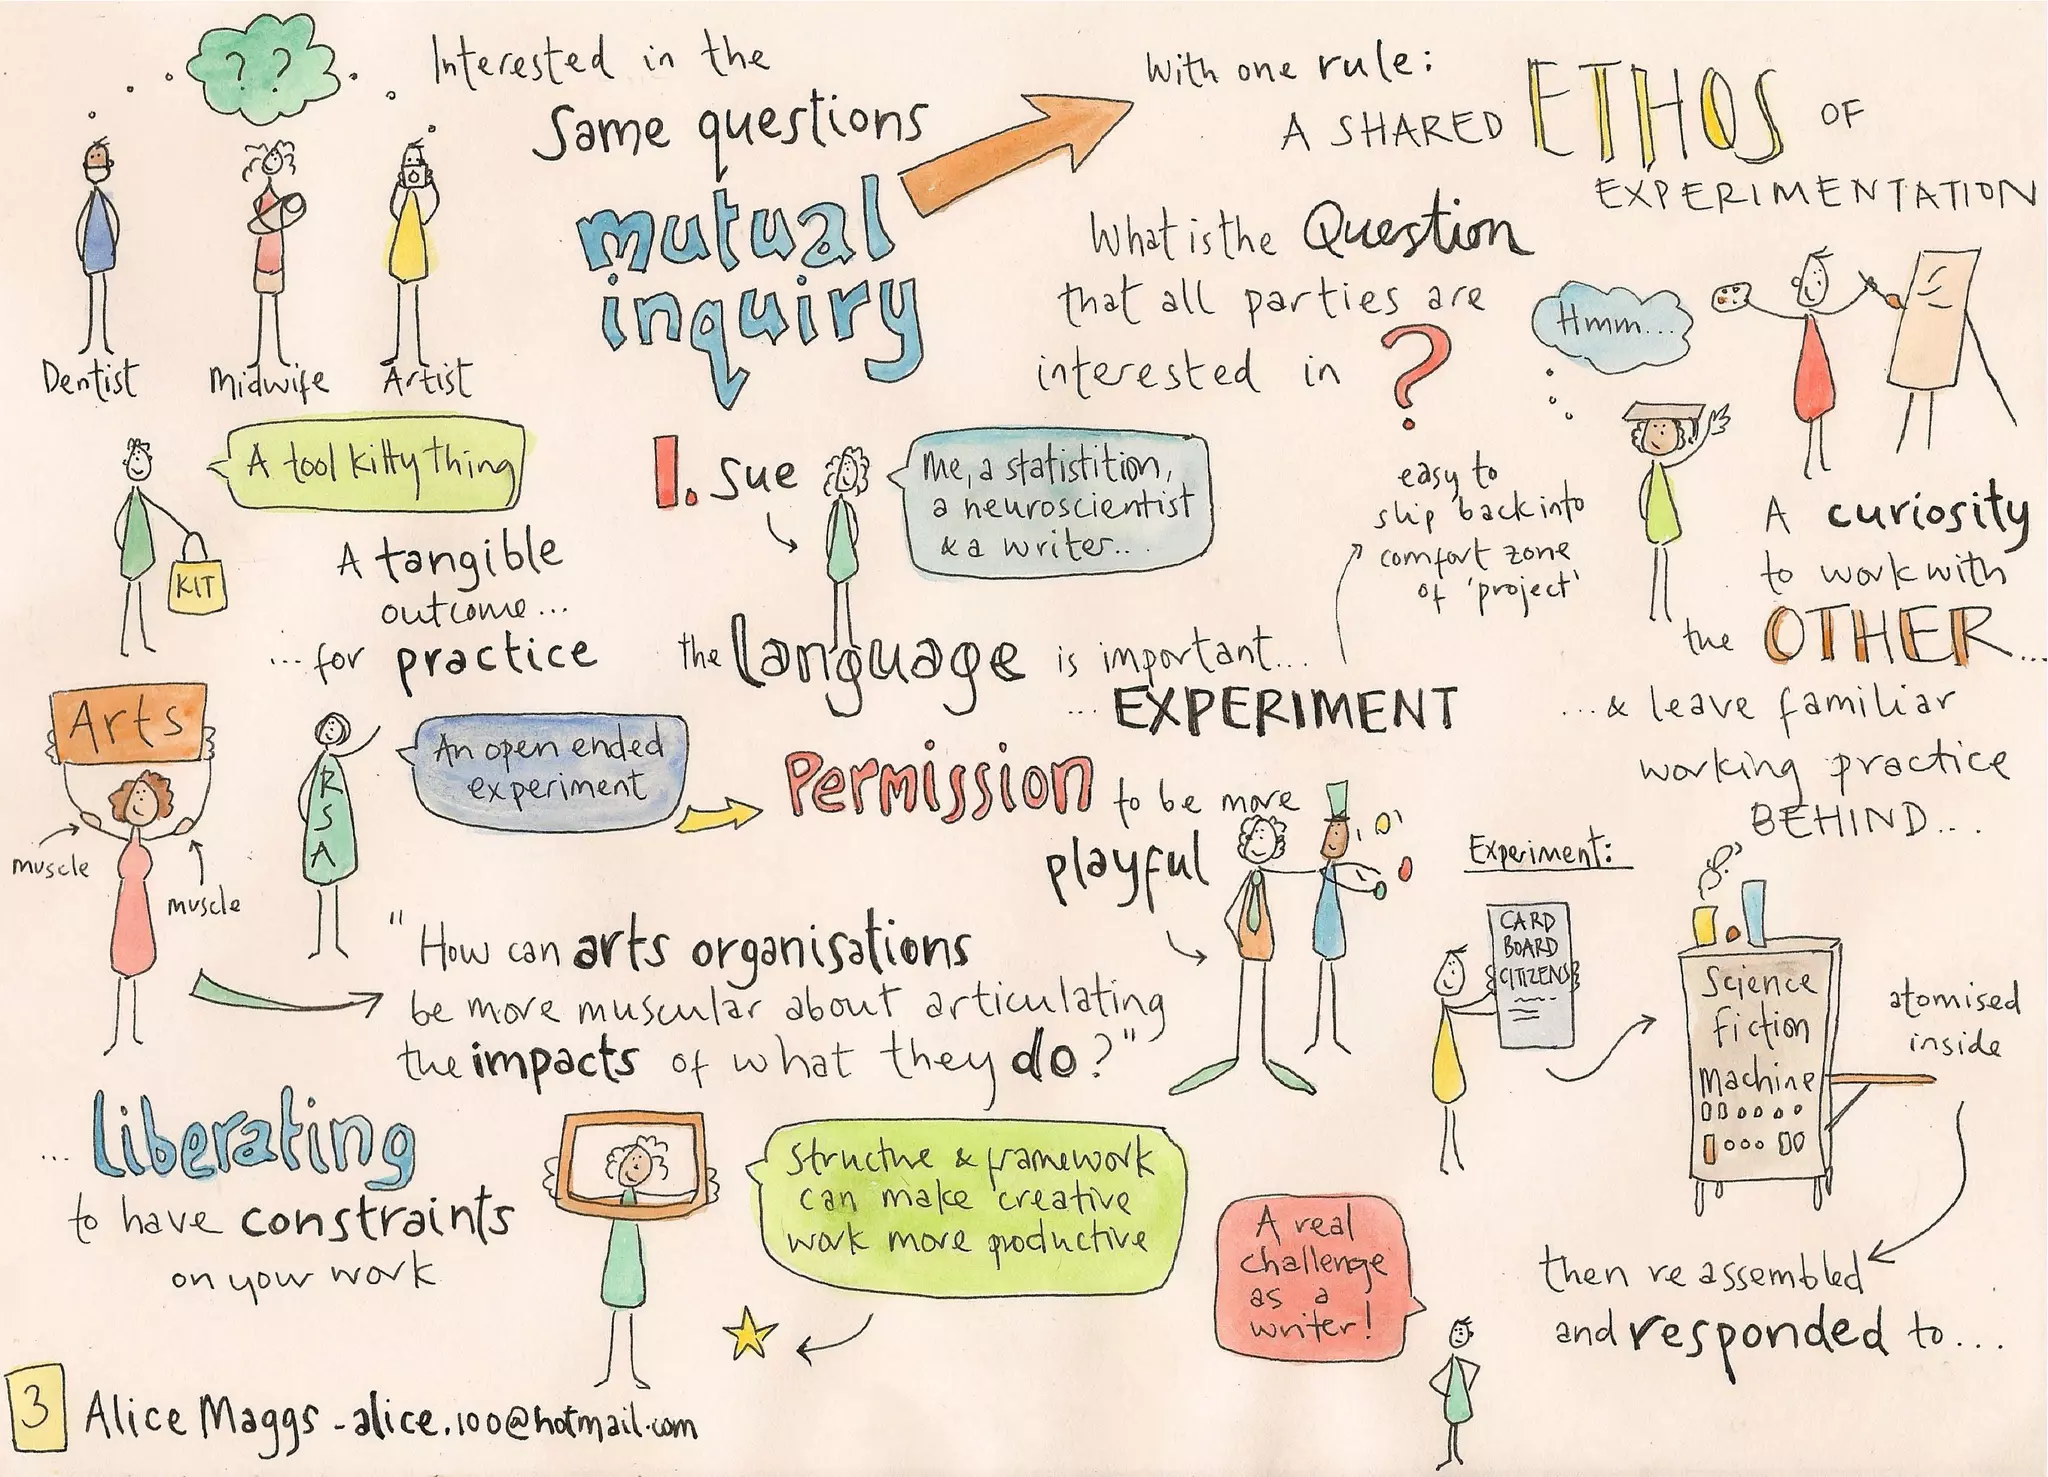 ? ?
Interested in the
same questions
mutual
inquiry
Dentist
Midwife
Artist
With one rule:
A SHARED ETHOS OF
EXPERIMENTATION
What is the Question
that all parties are
interested in ?
Hmm...
A tool kitty thing
KIT
A tangible
outcome...
...for practice
1. Sue
Me, a statistition,
a neuroscientist
& a writer...
the language is important...
... EXPERIMENT
easy to
slip back into
comfort zone
of 'project'
A curiosity
to work with
the OTHER...
...& leave familiar
working practice
BEHIND...
Arts
muscle
muscle
RSA
An open ended
experiment
Permission to be more
playful
"How can arts organisations
be more muscular about articulating
the impacts of what they do?"
Experiment:
CARD
BOARD
CITIZENS
Science
fiction
Machine
atomised
inside
then reassembled
and responded to...
... liberating
to have constraints
on your work
Structure & framework
can make creative
work more productive
A real
challenge
as a
writer!
3 Alice Maggs - alice.100@hotmail.com